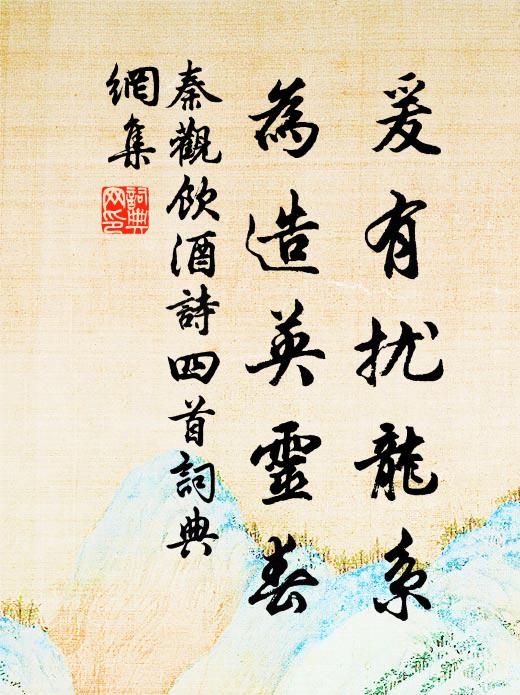 爰有扰龍系
為造英靈春
秦觀飲酒詩四首詞典
網集
詞典
网印